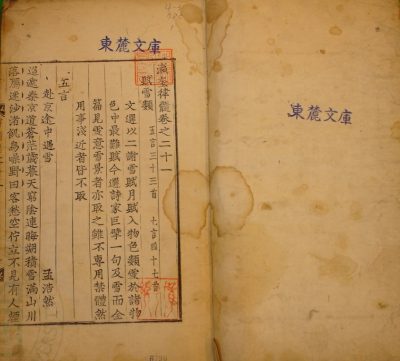 東麓文庫
東麓文庫
瀛奎律髓卷之二十一
雪類
五言三十三首 七言四十七首
文選以二謝雪賦月賦入物色類雪於諸物
色中最難賦今選詩家巨擘一句及雪而全
篇見雪意雪景者亦取之雖不專用禁體然
用事淺近者皆不取
五言
赴京途中遇雪 孟浩然
迢遞秦京道蒼茫歲暮天窮陰連晦朔積雪滿山川
落鴈迷沙渚飢烏噪野田客愁空佇立不見有人煙